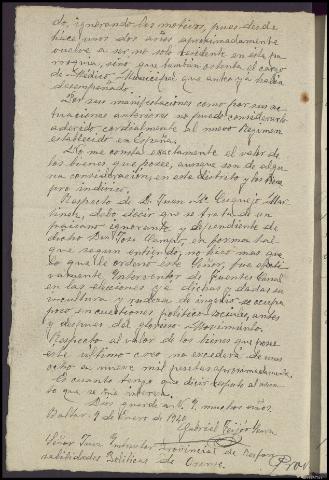 do, ignorando los motivos, pues desde
hace unos dos años aproximadamente
vuelve a ser no solo residente en esta pa-
rroquia, sino que tambien ostenta el cargo
de Médico Municipal que antes ya habia
desempeñado.
Por sus manifestaciones como por sus ac-
tuaciones anteriores no puedo considerarlo
adherido cordialmente al nuevo Regimen
establecido en España.
No me consta exactamente el valor de
los bienes que posee, aunque son de algu-
na consideración, en este distrito y los
pro indiviso.
Respecto de D. Juan Mª Cuquejo Mar-
tinez, debo decir que se trata de un
paisano ignorante y dependiente de
dicho Don Jose Campo, en forma tal
que segun entiendo, no hizo mas que
lo que le ordenó este Señor, fue efecti-
vamente Interventor de
en las elecciones y a dichas y dada su
incultura y rudeza de ingenio se ocupa
poco en cuestiones politico-sociales, antes
y despues del glorioso Movimiento.
Respecto al valor de los bienes que posee
este ultimo creo no excederá de unos
ocho a nueve mil pesetas aproximadamente.
Es cuanto tengo que decir respecto al asun-
to que se me interesa.
Dios guarde a V. S. muchos años.
Baltar, 9 de Enero de 1940
Gabriel
Señor Juez Instructor Provincial de Respon-
sabilidades Politicas de Orense.